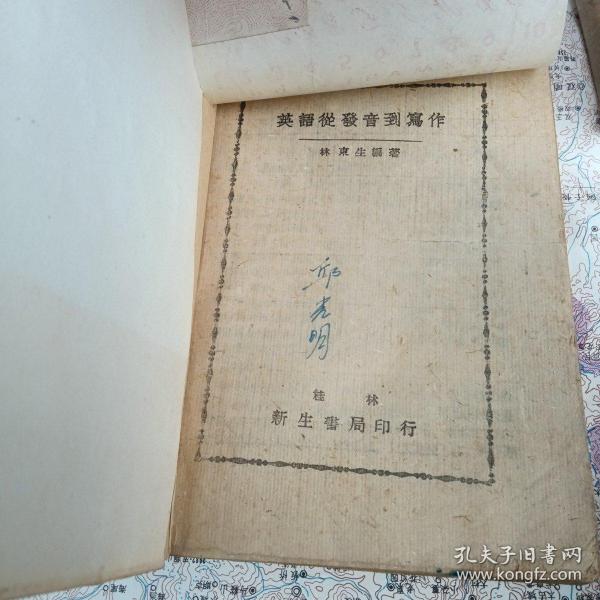 英語從發音到寫作
林東生編著
邱光明
桂林
新生書局印行
孔夫子旧书网
www.kongfz.com